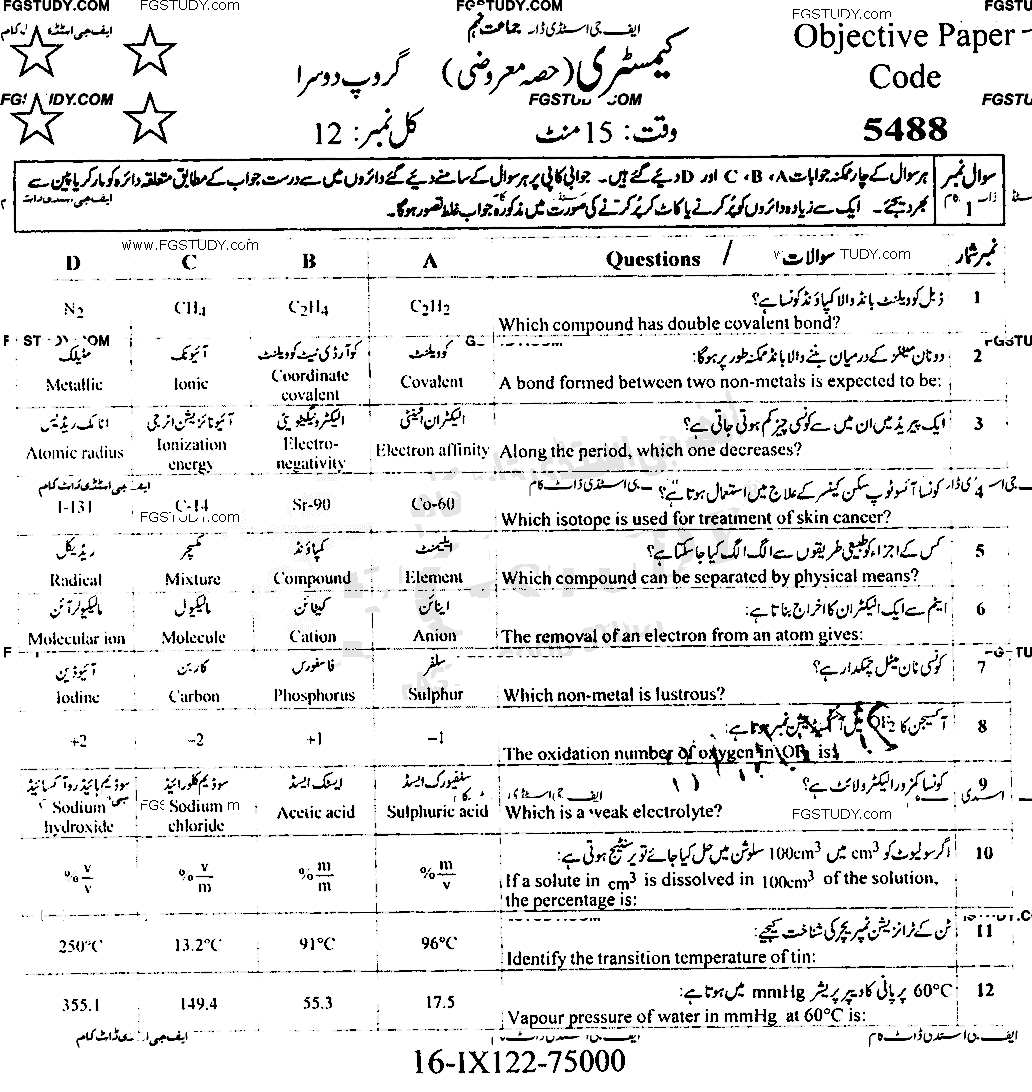 FGSTUDY.COM FGSTUDY.COM FGSTUDY.COM FGSTUDY.COM FGSTU
ایف جی اسٹڈی ڈار جماعت نہم
Objective Paper
Code
5488
کیمسٹری (حصہ معروضی) گروپ دوسرا
FGSTUDY.COM
وقت: 15 منٹ کل نمبر: 12
سوال نمبر 1
ہر سوال کے چار ممکنہ جوابات A، B، C اور D دیے گئے ہیں۔ جوابی کاپی پر ہر سوال کے سامنے دیے گئے دائروں میں سے درست جواب کے مطابق متعلقہ دائرہ کو مارکر یا پین سے
بھر دیجئے۔ ایک سے زیادہ دائروں کو پُر کرنے یا کاٹ کر پُر کرنے کی صورت میں مذکورہ جواب غلط تصور ہوگا۔
www.FGSTUDY.com
D C B A Questions / سوالات نمبر شمار
ڈبل کوویلنٹ بانڈ والا کمپاؤنڈ کونسا ہے؟ 1
N₂ CH₄ C₂H₄ C₂H₂ Which compound has double covalent bond?
مٹیلک آئیونک کوآرڈی نیٹ کوویلنٹ کوویلنٹ دو نان میٹلز کے درمیان بننے والا بانڈ ممکنہ طور پر ہوگا: 2
Metallic Ionic Coordinate covalent Covalent A bond formed between two non-metals is expected to be:
اٹامک ریڈیس آئیونائزیشن انرجی الیکٹرونیگیٹویٹی الیکٹران افینٹی ایک پیریڈ میں ان میں سے کونسی چیز کم ہوتی جاتی ہے؟ 3
Atomic radius Ionization energy Electro-negativity Electron affinity Along the period, which one decreases?
ایف جی اسٹڈی ڈاٹ کام کونسا آئسوٹوپ سکن کینسر کے علاج میں استعمال ہوتا ہے؟ 4
I-131 C-14 Sr-90 Co-60 Which isotope is used for treatment of skin cancer?
FGSTUDY.com
ریڈیکل مکسچر کمپاؤنڈ ایلیمنٹ کس کے اجزاء کو طبیعی طریقوں سے الگ الگ کیا جاسکتا ہے؟ 5
Radical Mixture Compound Element Which compound can be separated by physical means?
مالیکیولر آئن مالیکیول کیٹائن اینائن ایٹم سے ایک الیکٹران کا اخراج بناتا ہے: 6
Molecular ion Molecule Cation Anion The removal of an electron from an atom gives:
آئیوڈین کاربن فاسفورس سلفر کونسی نان میٹل چمکدار ہے؟ 7
Iodine Carbon Phosphorus Sulphur Which non-metal is lustrous?
آکسیجن کا OF₂ میں آکسیڈیشن نمبر ہوتا ہے: 8
+2 −2 +1 −1 The oxidation number of oxygen in OF₂ is:
سوڈیم ہائیڈروآکسائیڈ سوڈیم کلورائیڈ ایسٹک ایسڈ سلفیورک ایسڈ کونسا کمزور الیکٹرولائٹ ہے؟ 9
Sodium hydroxide Sodium chloride Acetic acid Sulphuric acid Which is a weak electrolyte?
FGSTUDY.com
اگر سولیوٹ کو cm³ میں 100cm³ سلوشن میں حل کیا جائے تو پرسنٹیج ہوتی ہے: 10
% v/v % v/m % m/m % m/v If a solute in cm³ is dissolved in 100cm³ of the solution, the percentage is:
ٹن کے ٹرانزیشن ٹمپریچر کی شناخت کیجیے: 11
250°C 13.2°C 91°C 96°C Identify the transition temperature of tin:
60°C پر پانی کا ویپر پریشر mmHg میں ہوتا ہے: 12
355.1 149.4 55.3 17.5 Vapour pressure of water in mmHg at 60°C is:
16-IX122-75000